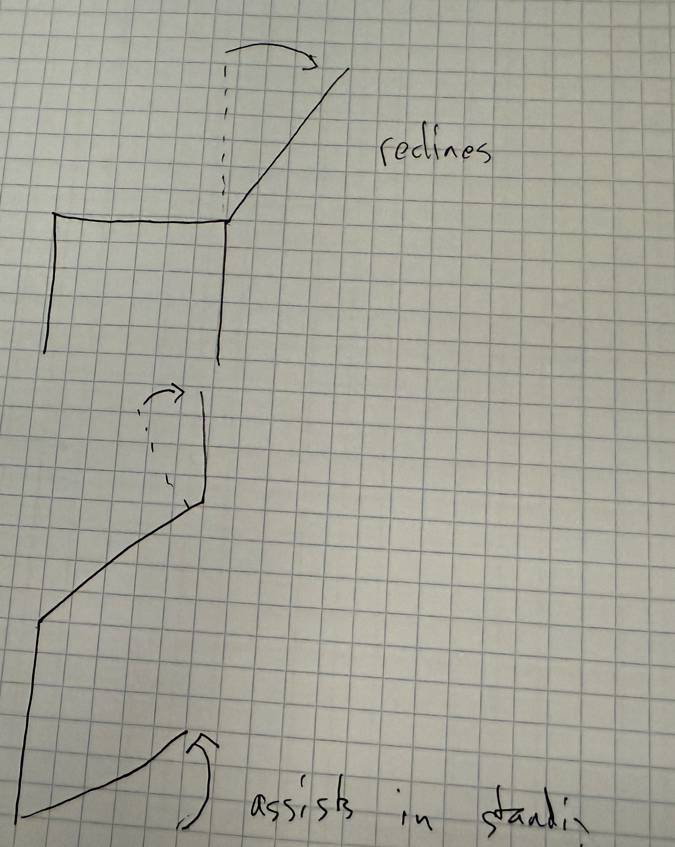 reclines
assists in standin